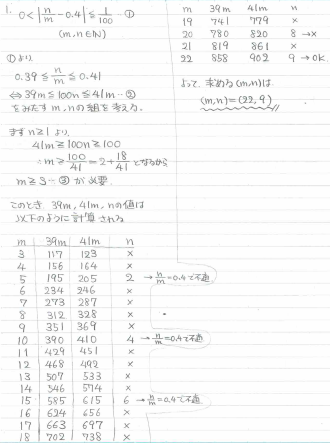 1. 0 < |n/m - 0.4| ≦ 1/100 … ①
(m,n∈N)
①より
0.39 ≦ n/m ≦ 0.41
⇔ 39m ≦ 100n ≦ 41m … ②
をみたす m,nの組を考える。
まず n≧1 より、
41m ≧ 100n ≧ 100
∴ m ≧ 100/41 = 2 + 18/41 となるから
m ≧ 3 … ③ が必要。
このとき、39m, 41m, nの値は
以下のように計算される
m 39m 41m n
3 117 123 ×
4 156 164 ×
5 195 205 2 → n/m = 0.4で不適
6 234 246 ×
7 273 287 ×
8 312 328 ×
9 351 369 ×
10 390 410 4 → n/m = 0.4で不適
11 429 451 ×
12 468 492 ×
13 507 533 ×
14 546 574 ×
15 585 615 6 → n/m = 0.4で不適
16 624 656 ×
17 663 697 ×
18 702 738 ×
m 39m 41m n
19 741 779 ×
20 780 820 8 → ×
21 819 861 ×
22 858 902 9 → OK
よって、求める(m,n)は
(m,n) = (22,9)